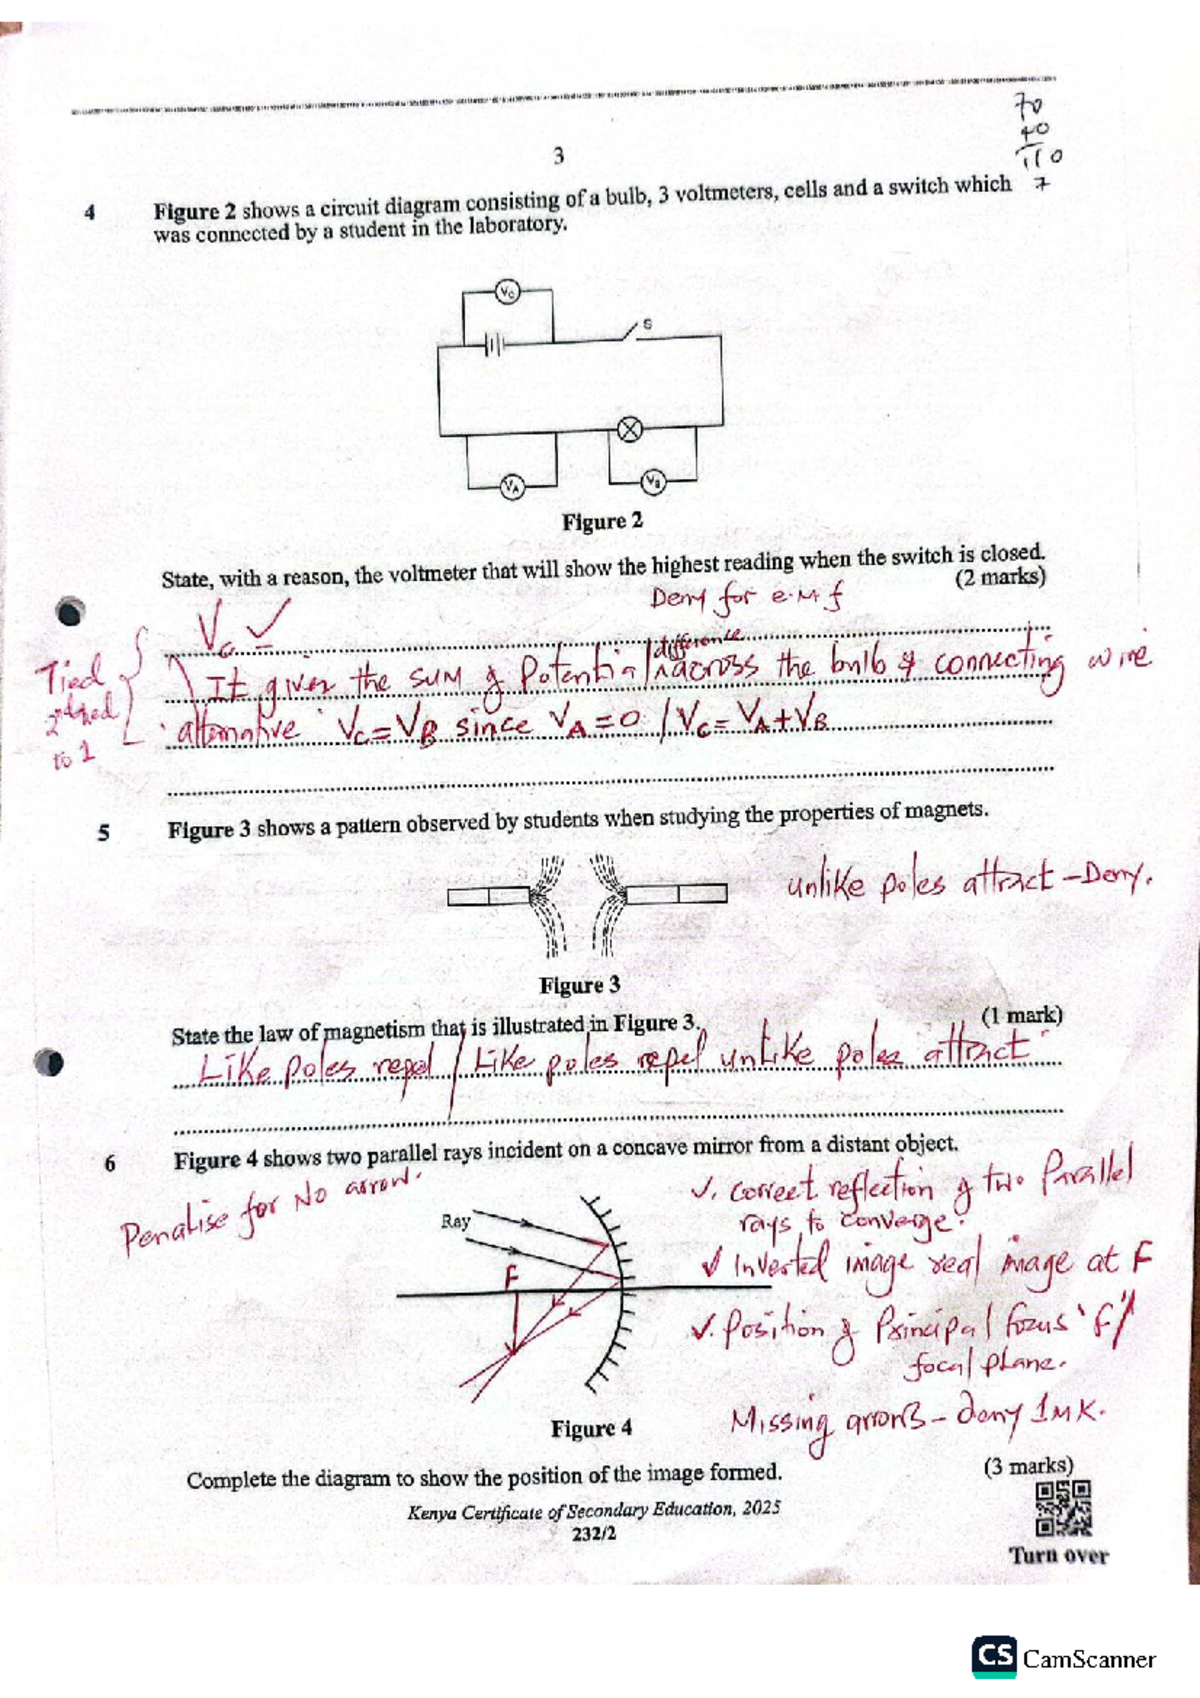 70
40
110
7
3
4 Figure 2 shows a circuit diagram consisting of a bulb, 3 voltmeters, cells and a switch which
was connected by a student in the laboratory.
VC
S
VA
VB
Figure 2
State, with a reason, the voltmeter that will show the highest reading when the switch is closed.
(2 marks)
Deny for e.m.f
VC ✓
difference
It gives the sum of Potential across the bulb & connecting wire
alternative VC = VB since VA = 0 / VC = VA + VB
Tied
2nd
to 1
5 Figure 3 shows a pattern observed by students when studying the properties of magnets.
unlike poles attract – Deny.
Figure 3
State the law of magnetism that is illustrated in Figure 3. (1 mark)
Like poles repel / Like poles repel unlike poles attract
6 Figure 4 shows two parallel rays incident on a concave mirror from a distant object.
Penalise for No arrow.
Ray
F
✓. Correct reflection of two Parallel
rays to converge.
✓ Inverted image real image at F
✓. Position of Principal focus 'F'/
focal plane.
Missing arrows – deny 1mk.
Figure 4
Complete the diagram to show the position of the image formed. (3 marks)
Kenya Certificate of Secondary Education, 2025
232/2
Turn over
CS CamScanner